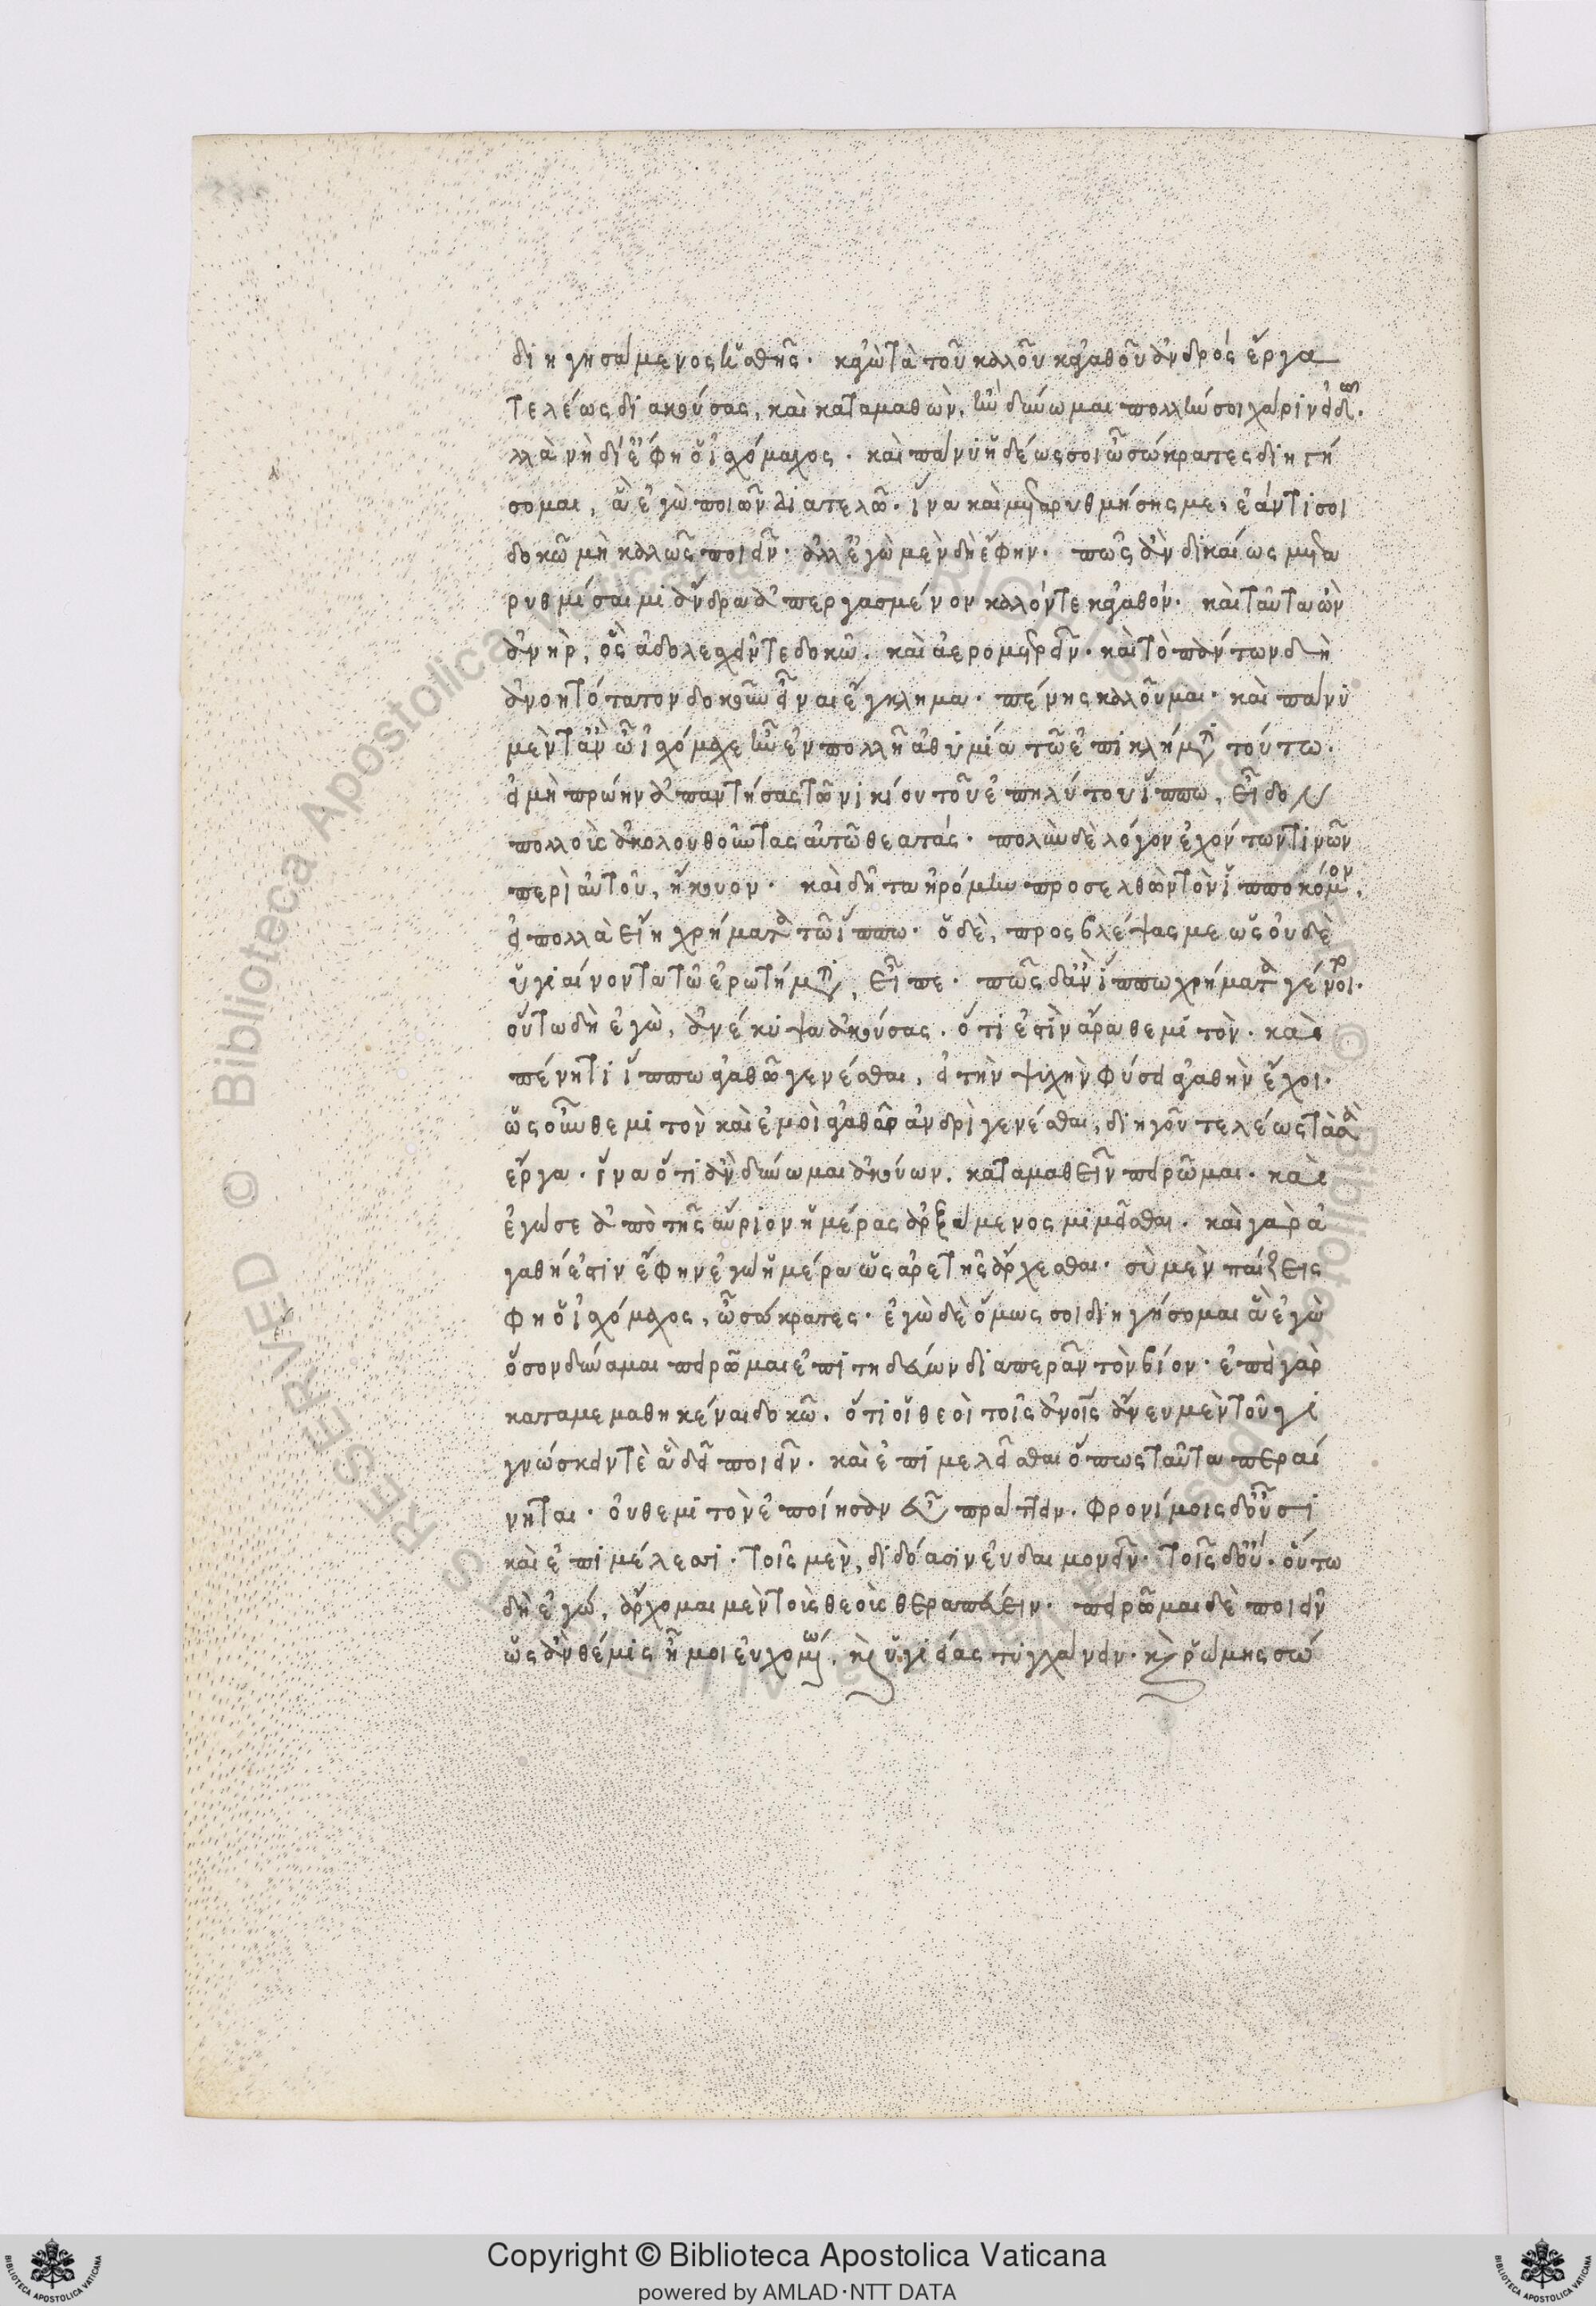 διηγησάμενος ἡσθῇς. κἀγὼ τὰ τοῦ καλοῦ κἀγαθοῦ ἀνδρός ἔργα
τελέως διακούσας, καὶ καταμαθὼν, ἢν δύνωμαι πολλήν σοι χάριν εἰδῶ. ἀ
λλὰ νὴ δί' ἔφη ὁ ἰσχόμαχος. καὶ πάνυ ἡδέως σοι ὦ σώκρατες διηγή
σομαι, ἃ ἐγὼ ποιῶν διατελῶ. ἵνα καὶ μεταρυθμήσῃς με, ἐάν τι σοι
δοκῶ μὴ καλῶς ποιεῖν. ἀλλ' ἐγὼ μὲν δὴ ἔφην. πῶς ἂν δικαίως μετα
ρυθμίσαιμι ἄνδρα ἀπεργασμένον καλόν τε κἀγαθόν. καὶ ταῦτα ὢν
ἀνὴρ, ὃς ἀδολεσχεῖν τε δοκῶ. καὶ ἀερομετρεῖν. καὶ τὸ πάντων δὴ
ἀνοητότατον δοκοῦν εἶναι ἔγκλημα. πένης καλοῦμαι. καὶ πάνυ
μὲν τἂν ὦ ἰσχόμαχε ἦν ἐν πολλῇ ἀθυμίᾳ τῷ ἐπικλήματι τούτω.
εἰ μὴ πρώην ἀπαντήσας τῷ νικίου τοῦ ἐπηλύτου ἵππω, εἶδον
πολλοὺς ἀκολουθοῦντας αὐτῷ θεατάς. πολὺν δὲ λόγον ἐχόντων τινῶν
περὶ αὐτοῦ, ἤκουον. καὶ δῆτα ἠρόμην προσελθὼν τὸν ἱπποκόμον,
εἰ πολλὰ εἴη χρήματα τῷ ἵππω. ὁ δὲ, προσβλέψας με ὡς οὐδὲ
ὑγιαίνοντα τῷ ἐρωτήματι, εἶπε. πῶς δ' ἂν ἵππω χρήματα γένοιτο.
οὕτω δὴ ἐγὼ, ἀνέκυψα ἀκούσας. ὅτι ἐστὶν ἄρα θεμιτὸν. καὶ
πένητι ἵππω ἀγαθῷ γενέσθαι, εἰ τὴν ψυχὴν φύσει ἀγαθὴν ἔχοι.
ὡς οὖν θεμιτὸν καὶ ἐμοὶ ἀγαθῷ ἀνδρὶ γενέσθαι, διηγοῦ τελέως τὰ σὰ
ἔργα. ἵνα ὅτι ἂν δύνωμαι ἀκούων. καταμαθεῖν πειρῶμαι. καὶ
ἐγώ σε ἀπὸ τῆς αὔριον ἡμέρας ἀρξάμενος μιμεῖσθαι. καὶ γὰρ ἀ
γαθή ἐστιν ἔφην ἐγὼ ἡμέρα ὡς ἀρετῆς ἄρχεσθαι. σὺ μὲν παίζεις
φη ὁ ἰσχόμαχος, ὦ σώκρατες. ἐγὼ δὲ ὅμως σοι διηγήσομαι ἃ ἐγὼ
ὅσον δύναμαι πειρῶμαι ἐπιτηδεύων διαπερᾶν τὸν βίον. ἐπεὶ γὰρ
καταμεμαθηκέναι δοκῶ. ὅτι οἱ θεοὶ τοῖς ἀνοις ἄνευ μὲν τοῦ γι
γνώσκειν τὲ ἃ δεῖ ποιεῖν. καὶ ἐπιμελεῖσθαι ὅπως ταῦτα περαί
νηται. οὐ θεμιτὸν ἐποίησαν εὖ πράττειν. φρονίμοις δ' οὖσι
καὶ ἐπιμέλεσι. τοῖς μὲν, διδόασιν εὐδαιμονεῖν. τοῖς δ' οὔ. οὕτω
δὴ ἐγώ, ἄρχομαι μὲν τοὺς θεοὺς θεραπεύειν. πειρῶμαι δὲ ποιεῖν
ὡς ἂν θέμις ᾖ μοι εὐχομένω, καὶ ὑγιείας τυγχάνειν. καὶ ῥώμης σώ